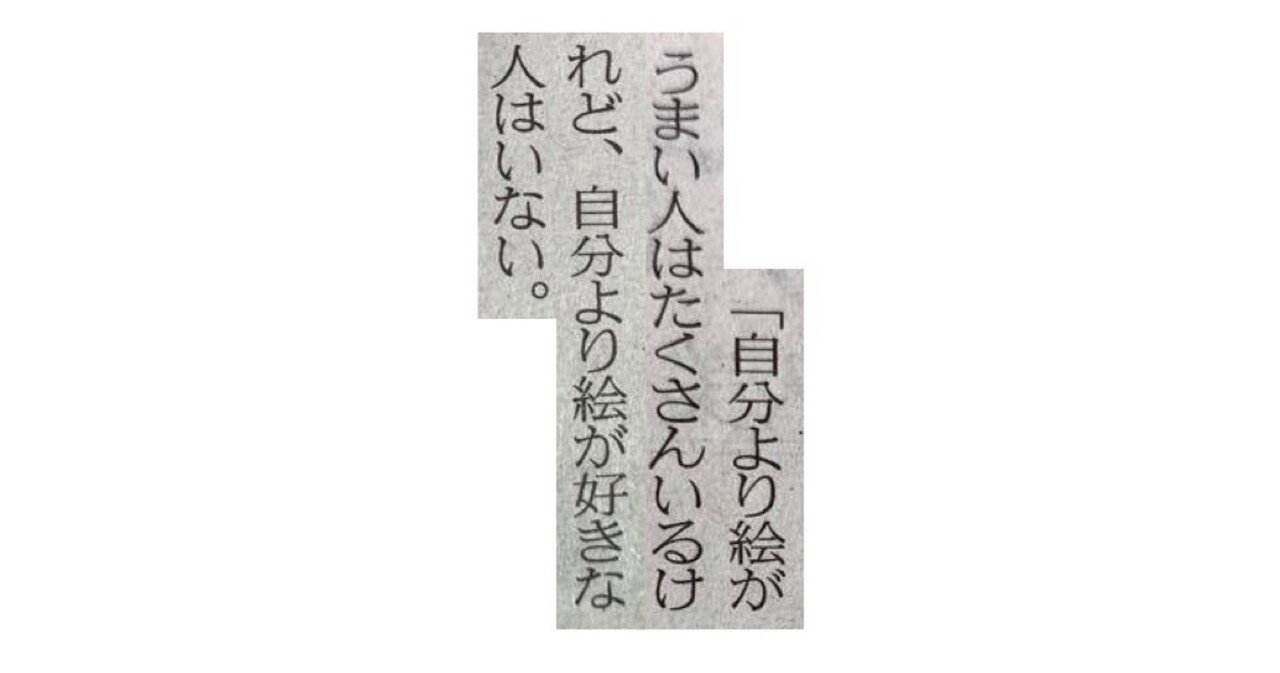 「自分より絵が
うまい人はたくさんいるけ
れど、自分より絵が好きな
人はいない。